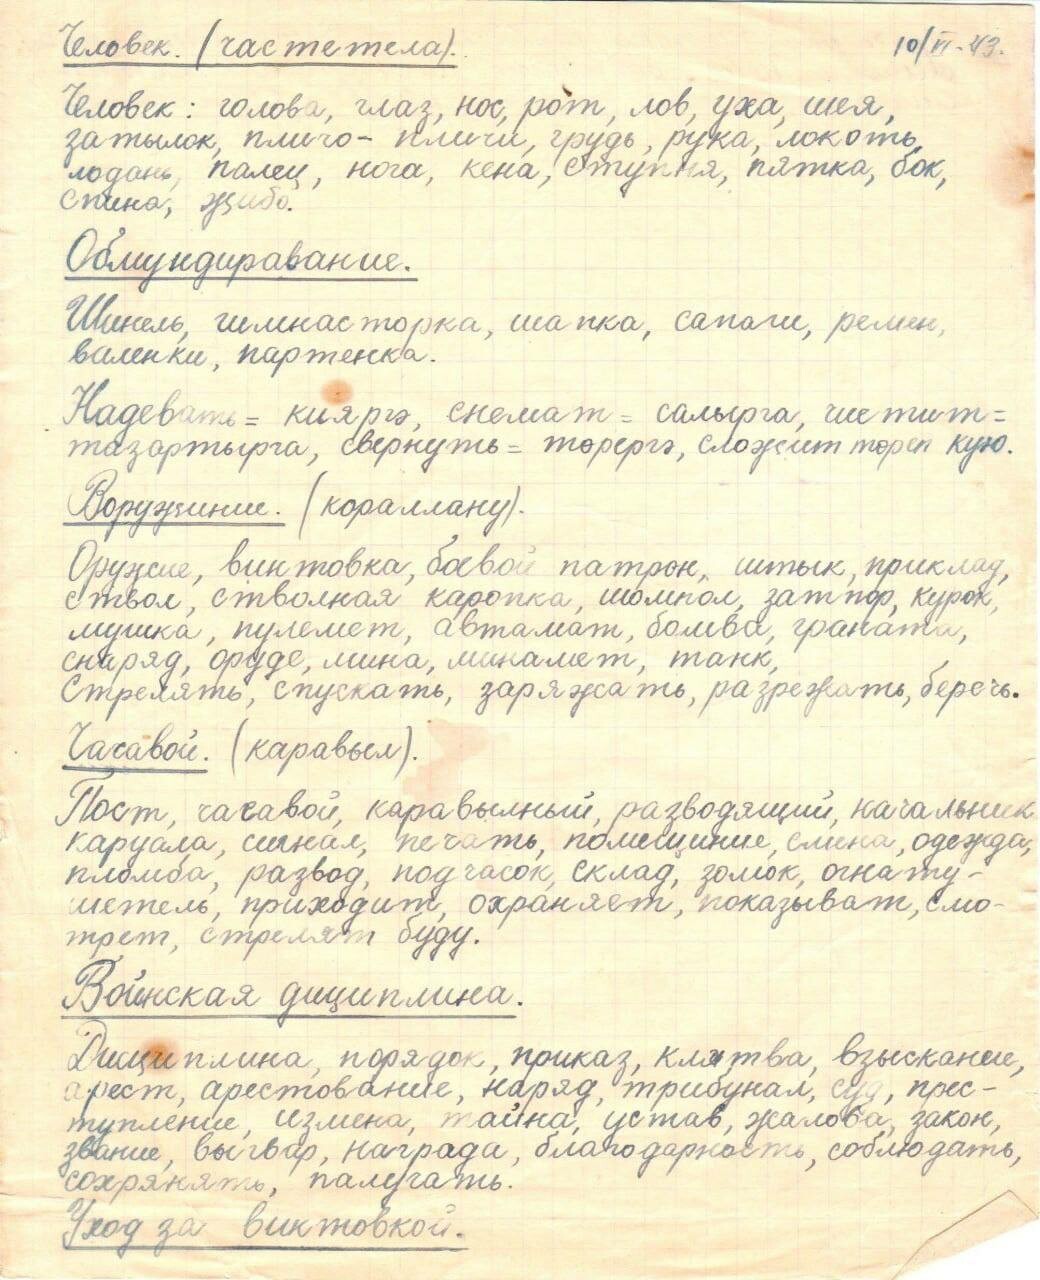 Человек. (частетела). 10/VI-43.
Человек: голова, глаз, нос, рот, лов, уха, шея,
затылок, пличо- пличи, грудь, рука, локоть,
лодань, палец, нога, кена, ступня, пятка, бок,
спина, жибо.
Обмундиравание.
Шинель, гимнасторка, шапка, сапаги, ремен,
валенки, партенка.
Надевать = кияргэ, снемат = салырга, чистит =
тазартырга, свернуть = төрергэ, сложит төреп кую.
Воружиние. (кораллану).
Оружие, винтовка, боевой патрон, штык, приклад,
ствол, стволная каропка, шомпол, затпор, курок,
мушка, пулемет, автамат, бомба, граната,
снаряд, оруде, мина, минамет, танк,
Стрелять, спускать, заряжать, разрежать, беречь.
Часавой. (каравыл).
Пост, часавой, каравылный, разводящий, начальник
каруала, сигнал, печать, помещиние, смена, одежда,
пломба, развод, подчасок, склад, зомок, огнату-
шетель, приходит, охраняет, показыват, смо-
трет, стрелят буду.
Воинская дициплина.
Дисциплина, порядок, приказ, клятва, взыскание,
арест, арестование, наряд, трибунал, суд, прес-
тупление, измена, тайна, устав, жалова, закон,
звание, выгвар, награда, благодарность, соблюдать,
сохрянять, палучать.
Уход за виктовкой.